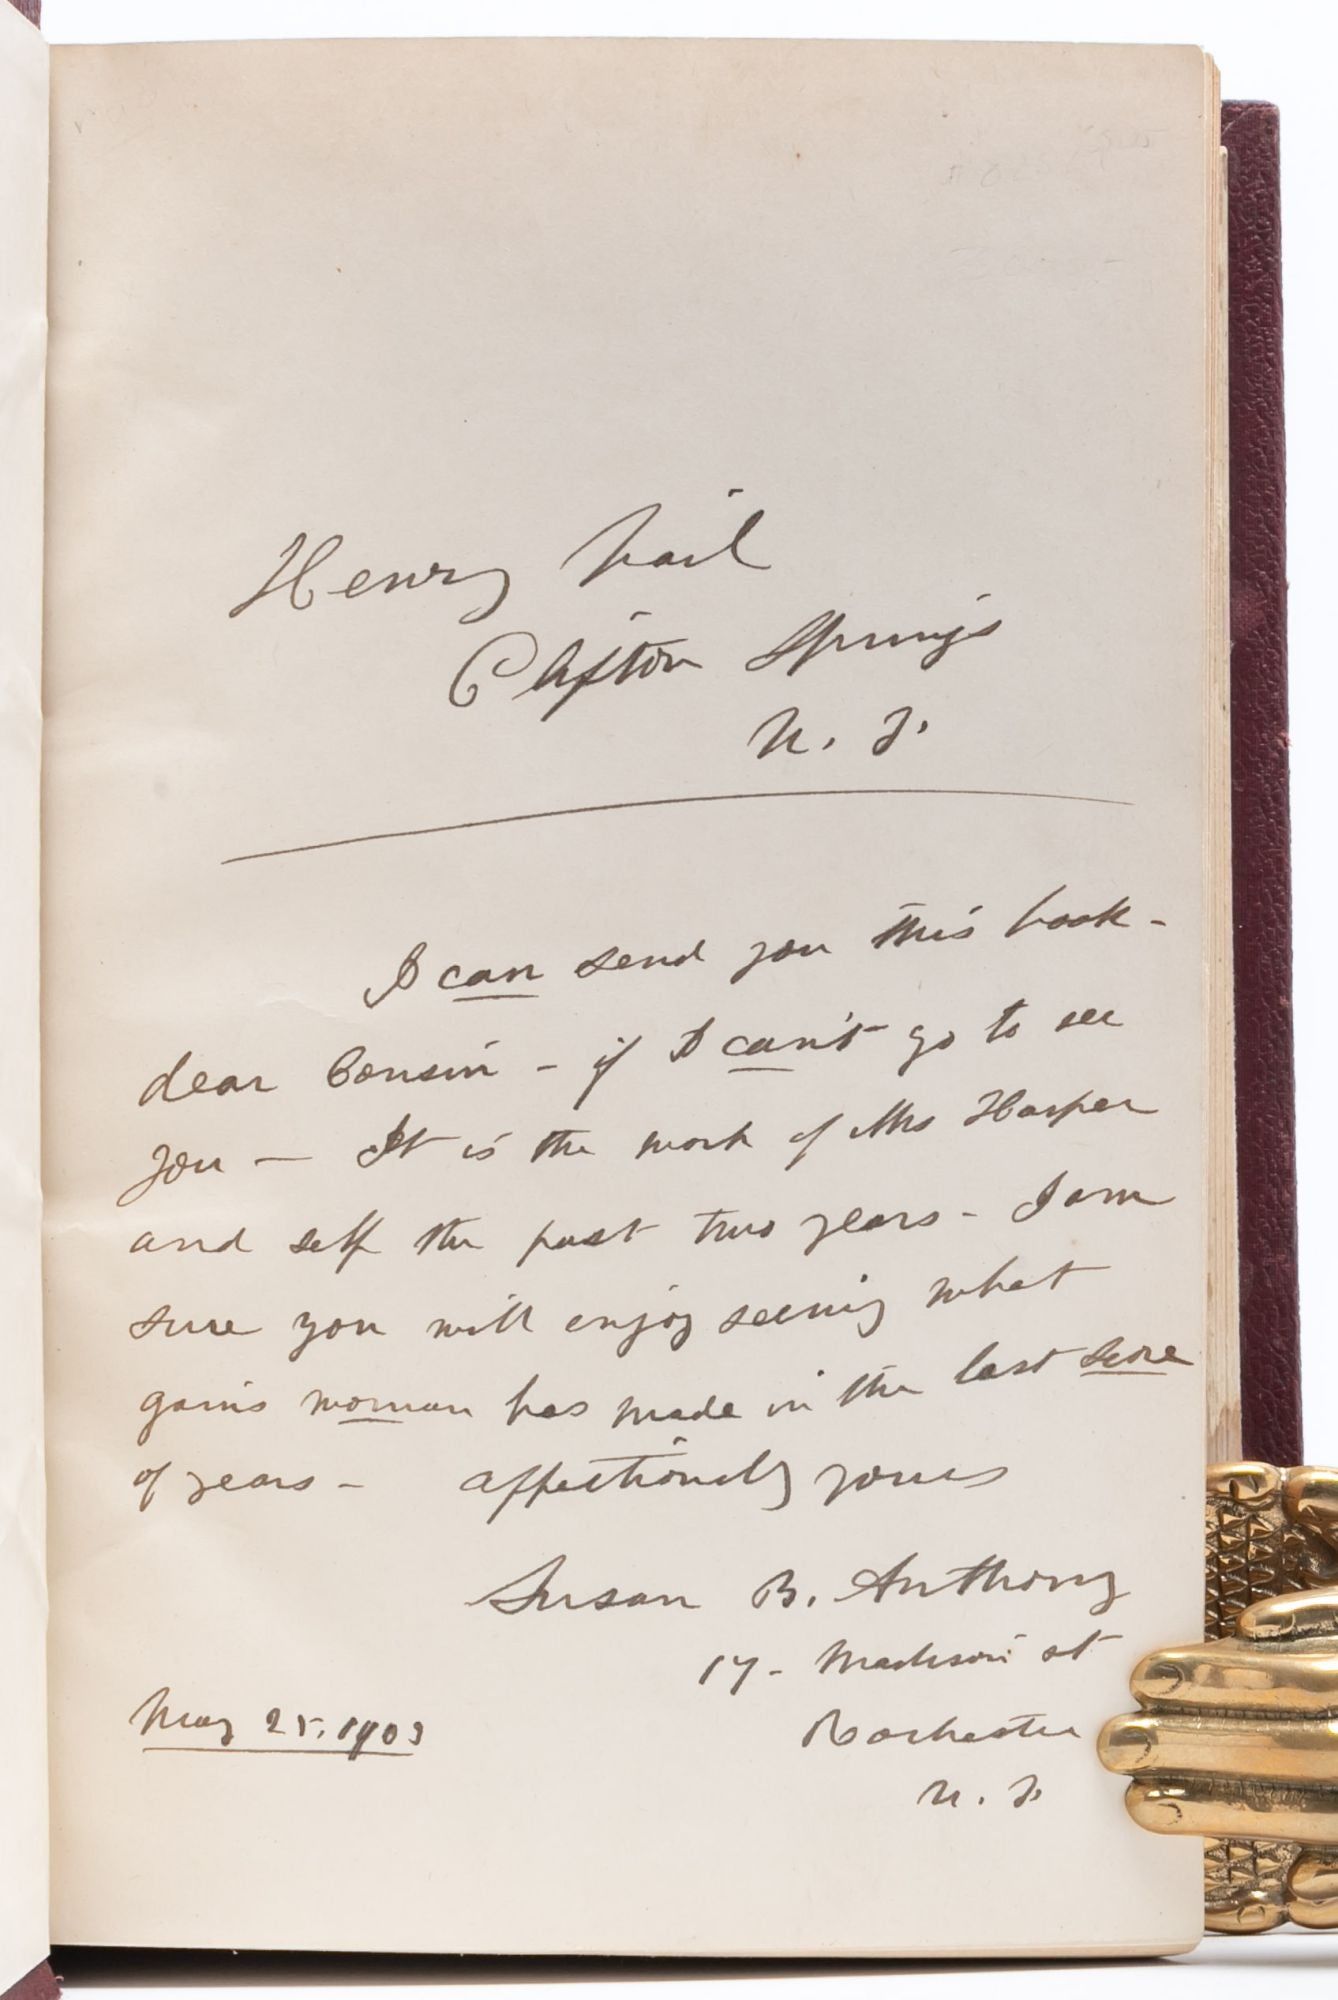 Henry Vail
Clifton Springs
N. Y.
I can send you this book -
dear Cousin - if I can't go to see
you - It is the work of Mrs Harper
and self the past two years - I am
sure you will enjoy seeing what
gains woman has made in the last score
of years - affectionately yours
Susan B. Anthony
17 - Madison st
May 25, 1903
Rochester
N. Y.